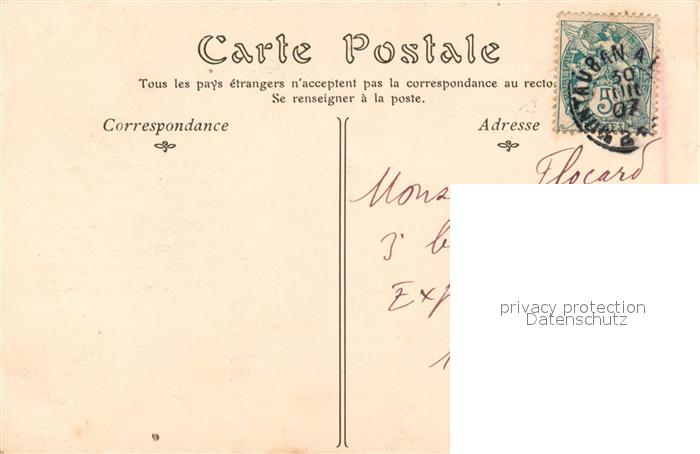 Carte Postale
Tous les pays étrangers n'acceptent pas la correspondance au recto.
Se renseigner à la poste.
Correspondance
Adresse
MONTAUBAN
07
5
Flocard
Mons
3
Exp
privacy protection
Datenschutz